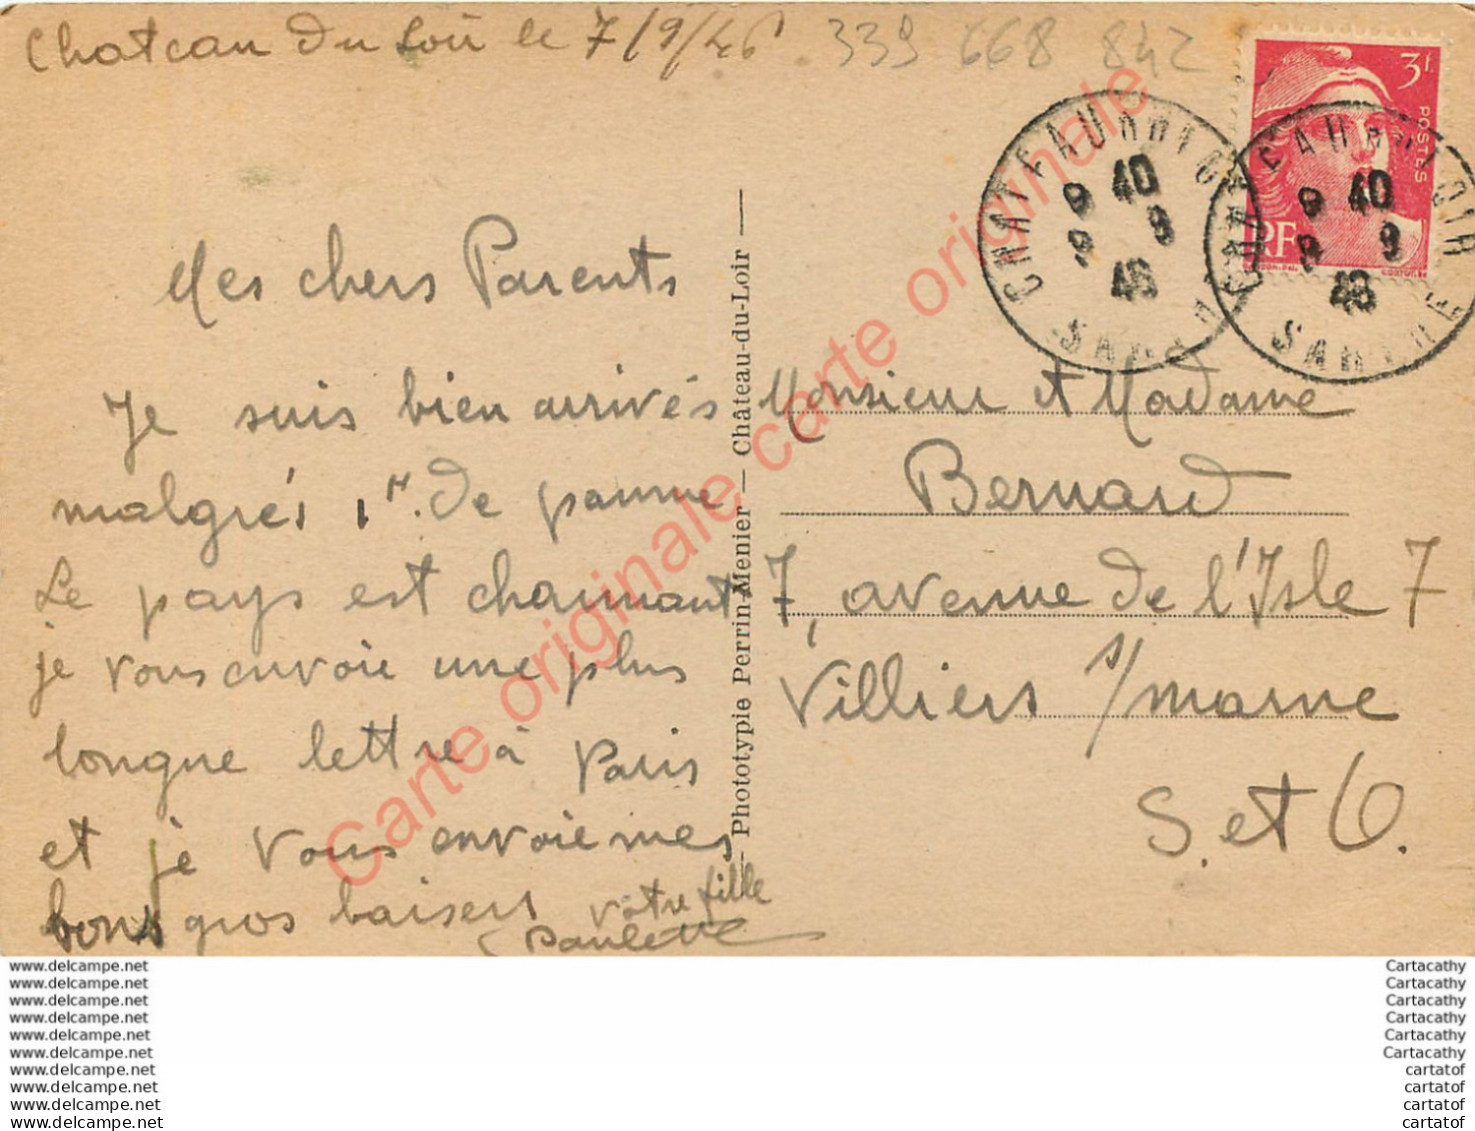 Chateau du Loir le 7/9/46
339 668 842
3f.
POSTES
RF
CHATEAU DU LOIR
9 40
9 9
46
SARTHE
CHATEAU DU LOIR
9 40
9 9
46
SARTHE
Mes chers Parents
Je suis bien arrivés
malgrés 1H. de panne
Le pays est charmant
je vous envoie une plus
longue lettre à Paris
et je vous envoie mes
bons gros baisers votre fille
Paulette
Phototypie Perrin-Menier — Château-du-Loir —
Monsieur et Madame
Bernard
7, avenue de l'Isle 7
Villiers s/marne
S. et O.
Carte originale carte originale carte originale
www.delcampe.net
www.delcampe.net
www.delcampe.net
www.delcampe.net
www.delcampe.net
www.delcampe.net
www.delcampe.net
www.delcampe.net
www.delcampe.net
www.delcampe.net
Cartacathy
Cartacathy
Cartacathy
Cartacathy
Cartacathy
Cartacathy
cartatof
cartatof
cartatof
cartatof